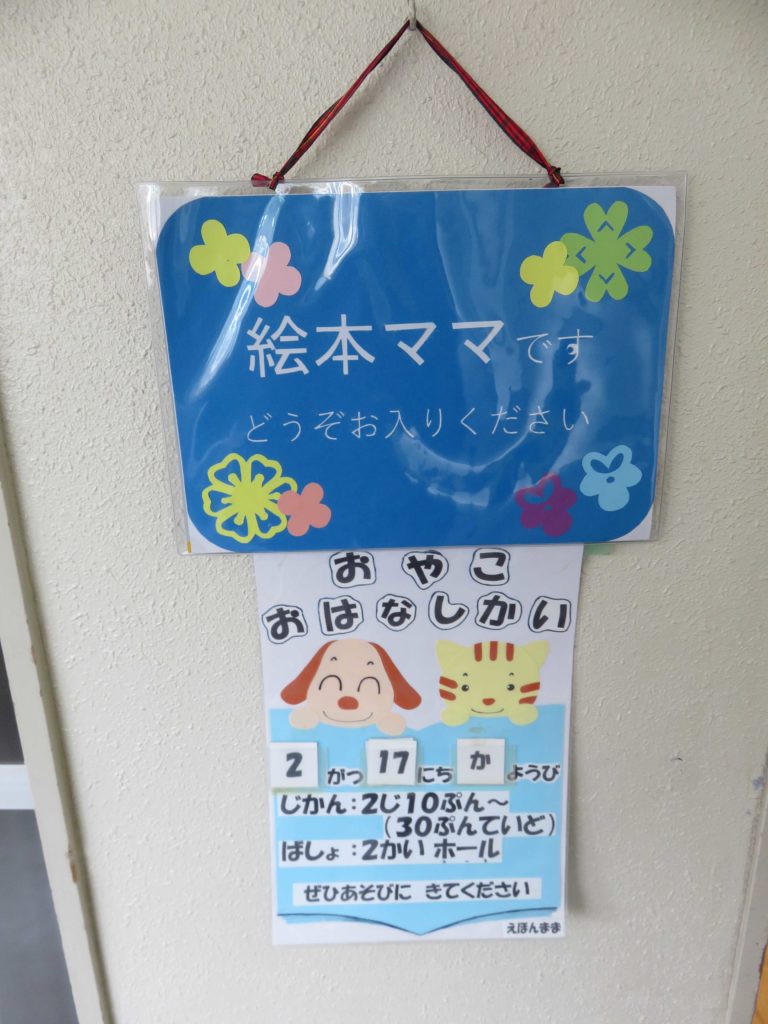 絵本ママです
どうぞお入りください
おやこ
おはなしかい
2がつ17にちかようび
じかん：2じ10ぷん～
（30ぷんていど）
ばしょ：2かい ホール
ぜひあそびに きてください
えほんまま